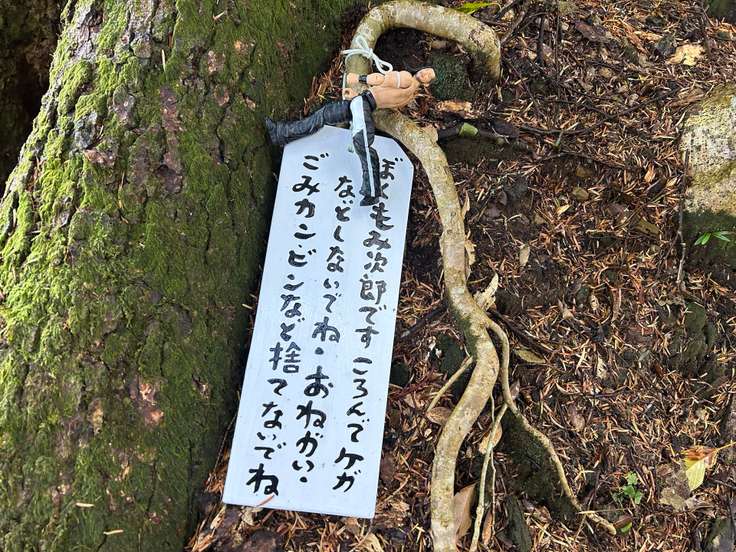 ぼくもみ次郎です ころんでケガ
などしないでね・おねがい・
ごみカン・ビンなど捨てないでね